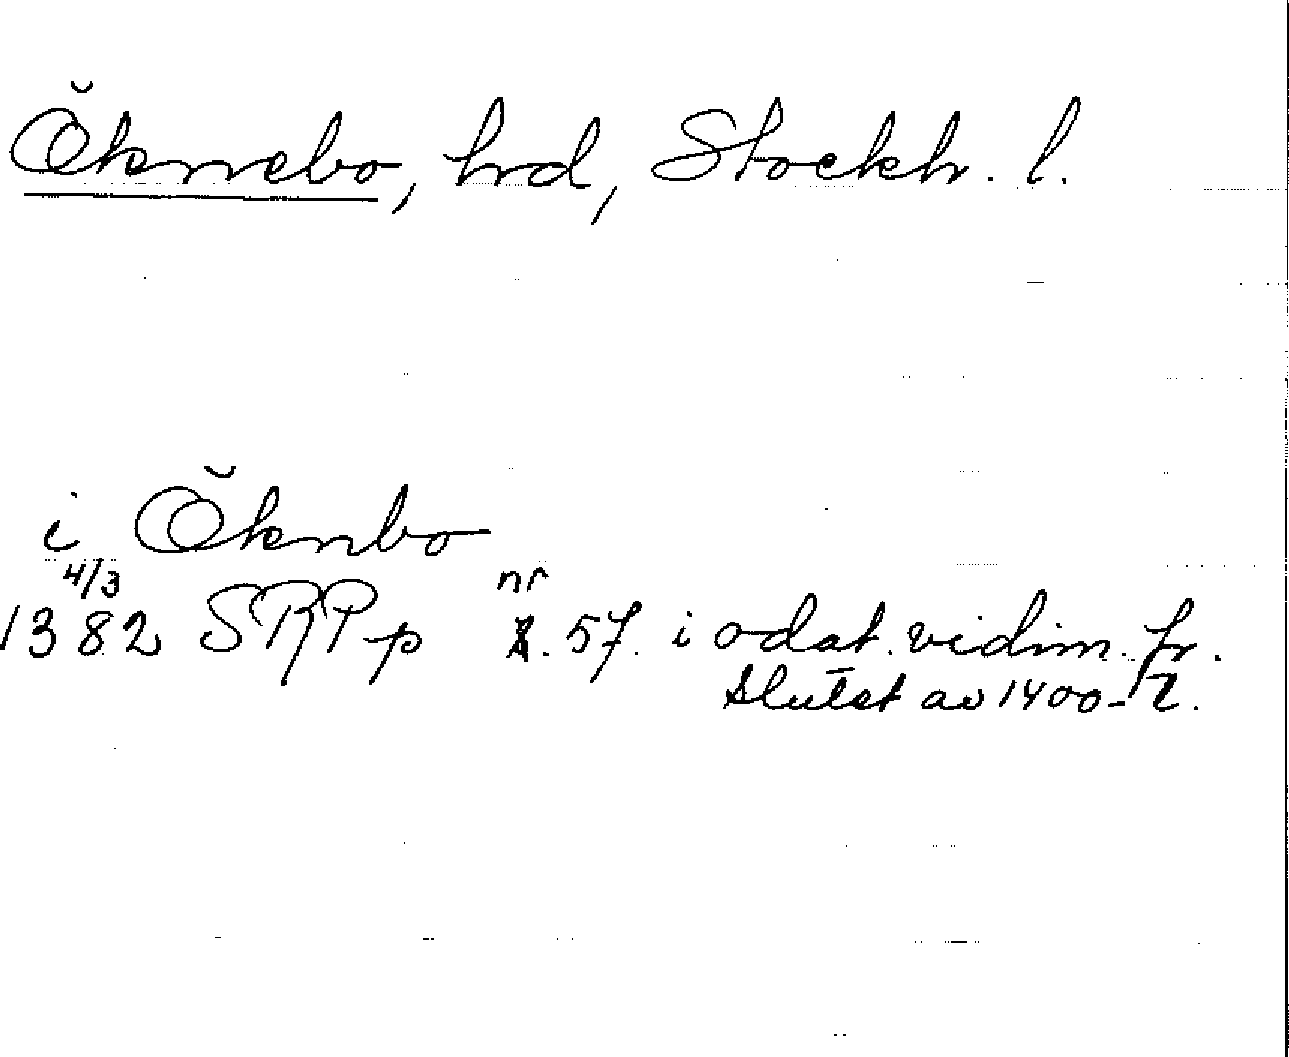 Öknebo, hrd, Stockh. l.
i Öknbo
4/3 nr
1382 SRPp 57. i odat. vidim. fr.
slutet av 1400-t.